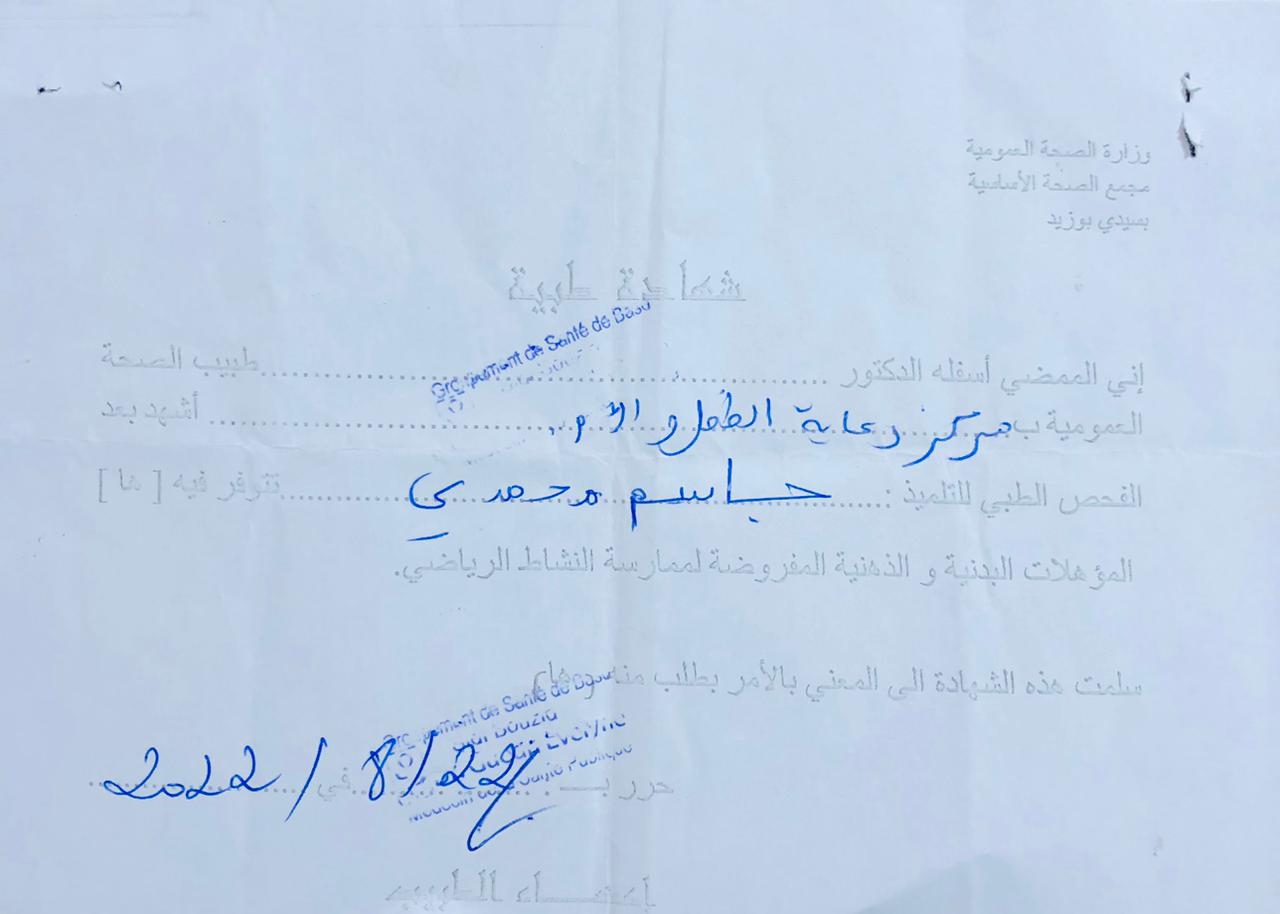 وزارة الصحة العمومية
مجمع الصحة الأساسية
بسيدي بوزيد
شهادة طبية
Groupement de Santé de Base
إني الممضي أسفله الدكتور ........................ طبيب الصحة
العمومية ب مركز رعاية الطفل و الأم. ........ أشهد بعد
الفحص الطبي للتلميذ : جاسم محمدي ........ تتوفر فيه [ ها ]
المؤهلات البدنية و الذهنية المفروضة لممارسة النشاط الرياضي.
سلمت هذه الشهادة الى المعني بالأمر بطلب منه
Groupement de Santé de Base
Sidi Bouzid
Evelyne
Médecin de la Santé Publique
حرر بـ ........ في 2022/8/22
إمضاء الطبيب